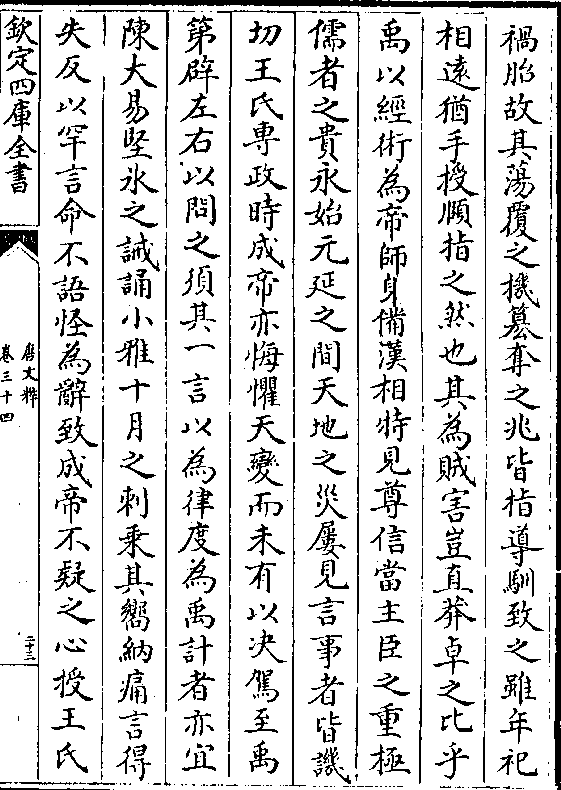 禍胎故其蕩覆之機簒奪之兆皆指導馴致之雖年祀
相遠猶手授頤指之然也其為賊害豈直莽卓之比乎
禹以經術為帝師身備漢相特見尊信當主臣之重極
儒者之貴永始元延之間天地之災屢見言事者皆譏
切王氏專政時成帝亦悔懼天變而未有以决駕至禹
第辟左右以問之須其一言以為律度為禹計者亦宜
陳大易堅氷之誡誦小雅十月之刺乗其嚮納痛言得
失反以罕言命不語怪為辭致成帝不疑之心授王氏
欽定四庫全書
唐文粹
卷三十四
二十三